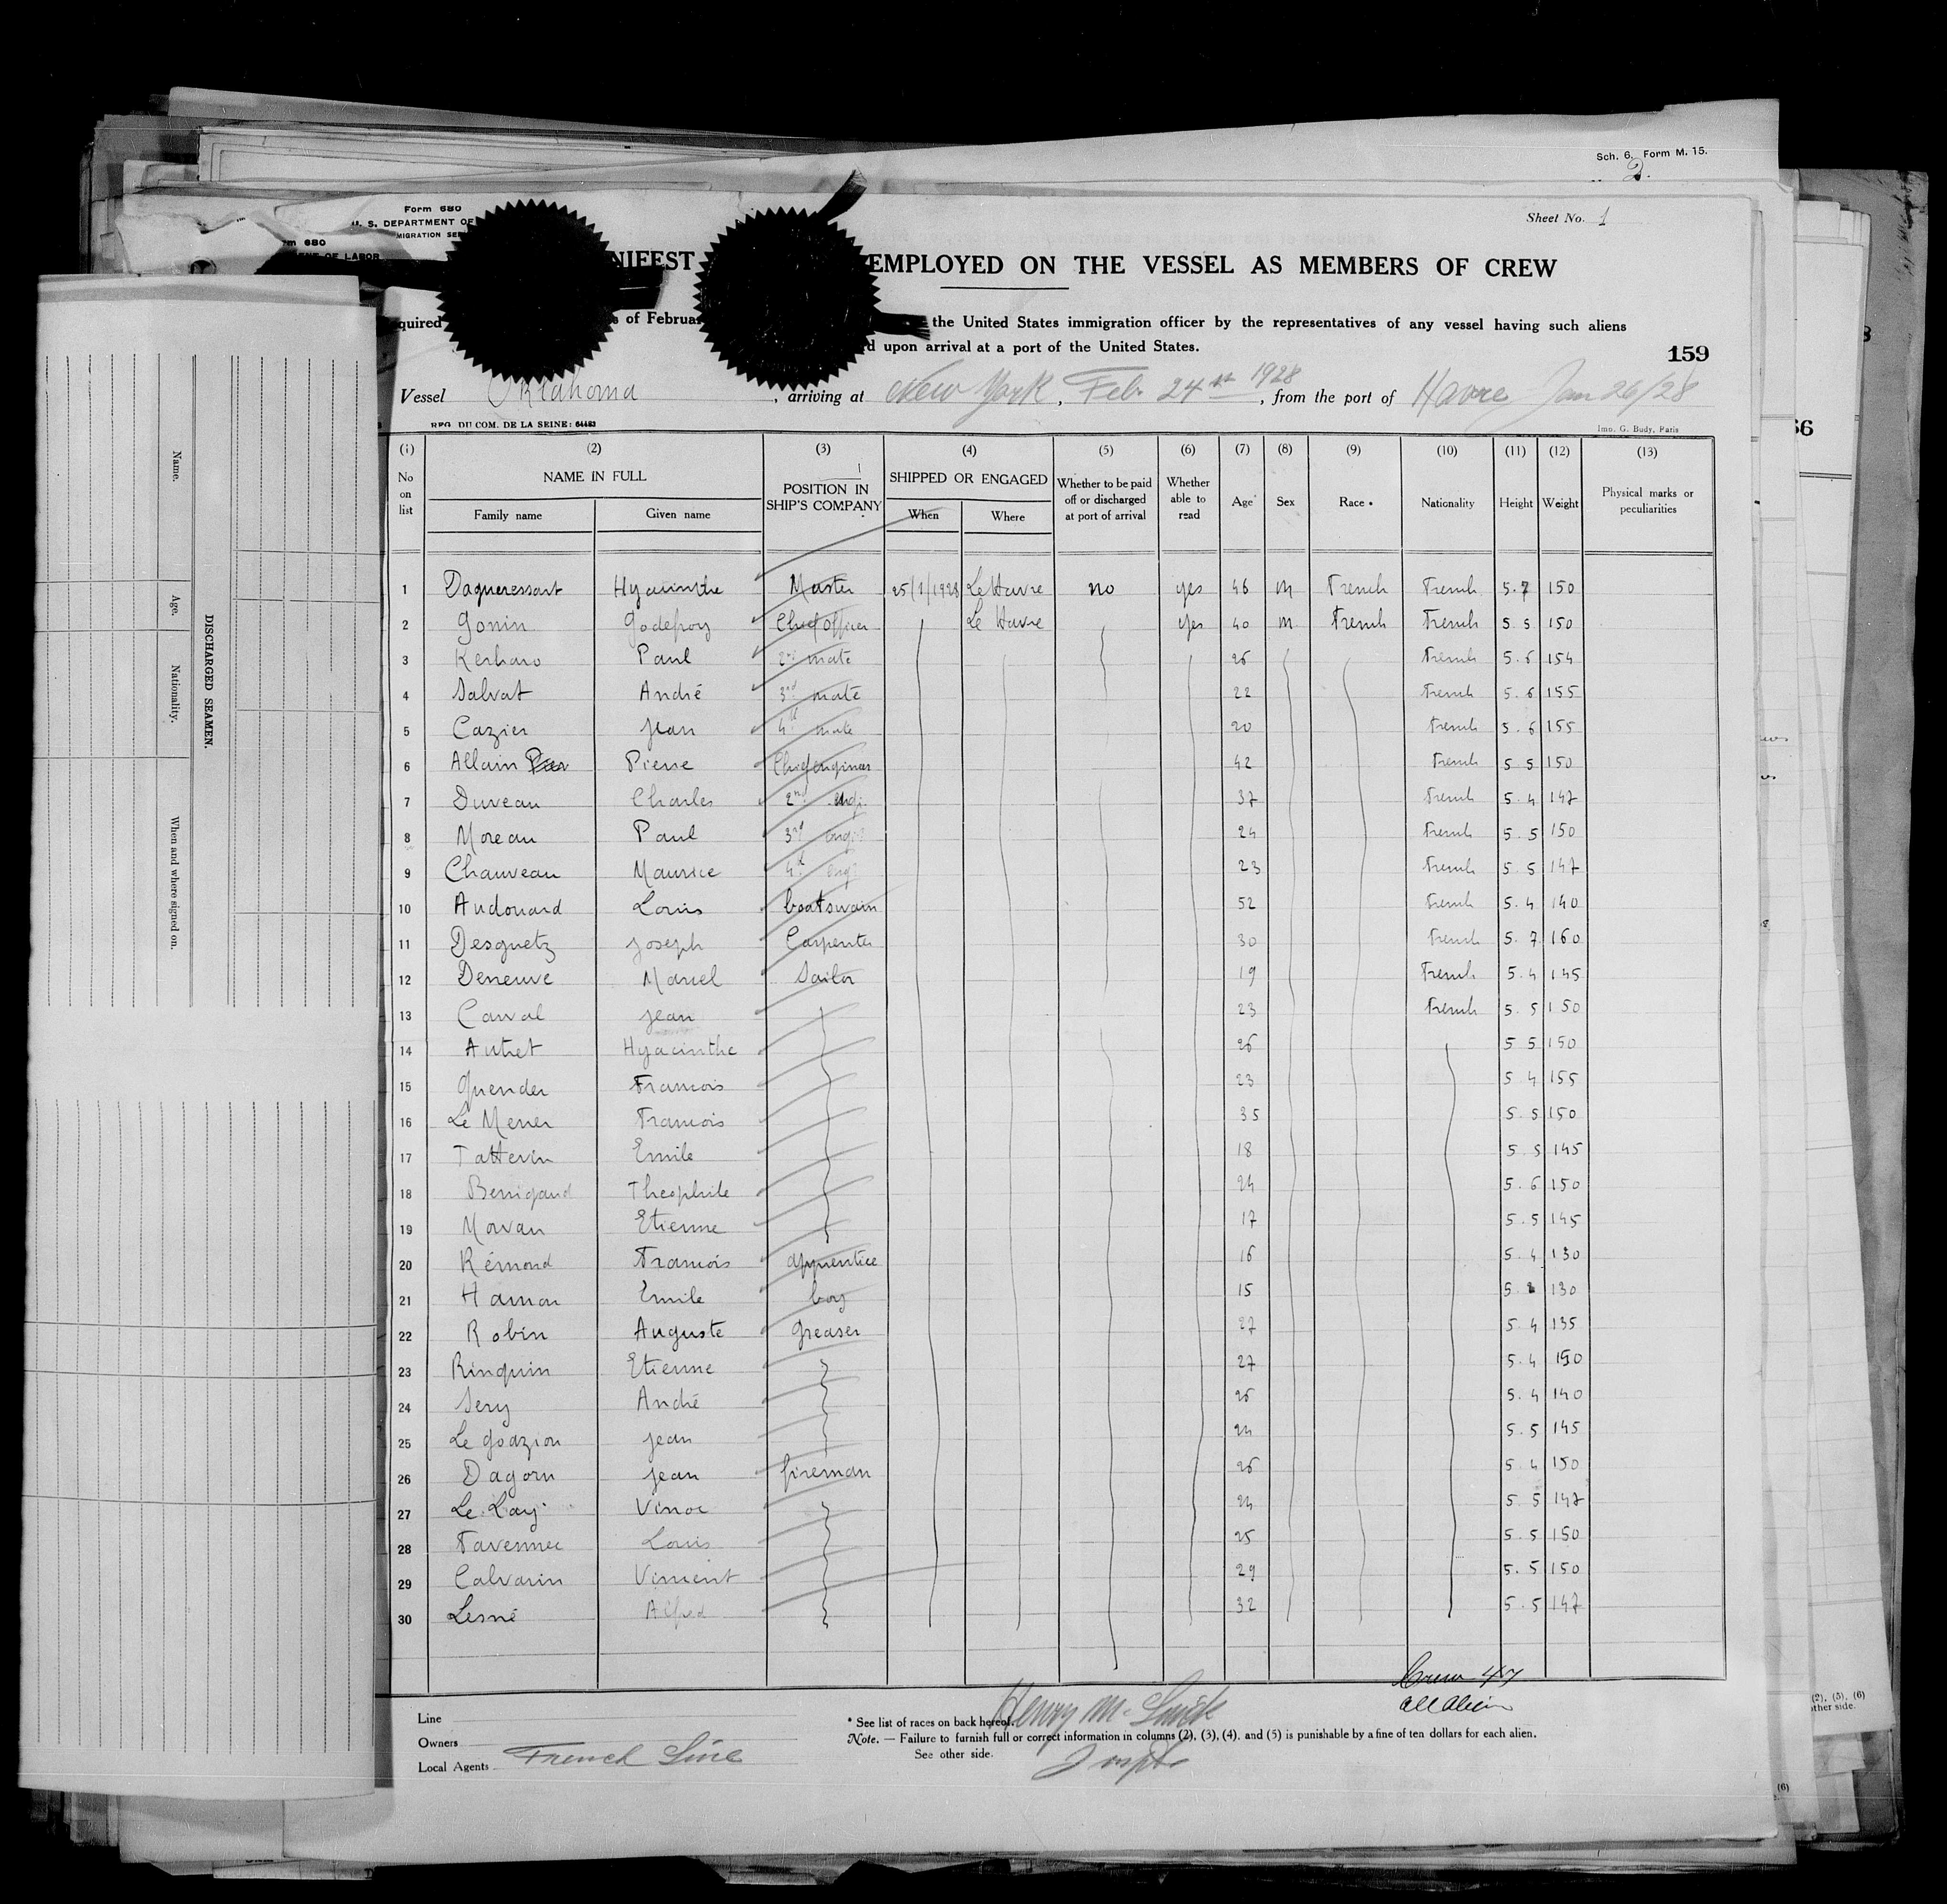 Sch. 6. Form M. 15.
2.
Form 680
U. S. DEPARTMENT OF
MIGRATION SE
rm 680
OF LABOR
Sheet No. 1
NIFEST EMPLOYED ON THE VESSEL AS MEMBERS OF CREW
quired s of Februa the United States immigration officer by the representatives of any vessel having such aliens
d upon arrival at a port of the United States.
159
Vessel Oklahoma, arriving at New York, Feb. 24th 1928, from the port of Havre Jan 26/28
REG. DU COM. DE LA SEINE: 64483
Imp. G. Budy, Paris
(1) (2) (3) (4) (5) (6) (7) (8) (9) (10) (11) (12) (13)
No on list NAME IN FULL Family name Given name POSITION IN SHIP'S COMPANY SHIPPED OR ENGAGED When Where Whether to be paid off or discharged at port of arrival Whether able to read Age Sex Race * Nationality Height Weight Physical marks or peculiarities
1 Dagueressart Hyacinthe Master 25/1/1928 Le Havre no yes 46 m French French 5.7 150
2 Gonin Godefroy Chief officer Le Havre yes 40 m French French 5 5 150
3 Kerharo Paul 2nd mate 26 French 5.6 154
4 Salvat André 3rd mate 22 French 5.6 155
5 Cazier Jean 4th mate 20 French 5.6 155
6 Allain Pierre Chief engineer 42 French 5 5 150
7 Duveau Charles 2nd eng. 37 French 5.4 147
8 Moreau Paul 3rd eng. 24 French 5.5 150
9 Chauveau Maurice 4th eng. 23 French 5 5 147
10 Audouard Louis boatswain 52 French 5.4 140
11 Desguetz Joseph Carpenter 30 French 5.7 160
12 Deneuve Marcel Sailor 19 French 5.4 145
13 Carval Jean 23 French 5.5 150
14 Autret Hyacinthe 26 5 5 150
15 Guender Francois 23 5 4 155
16 Le Mener Francois 35 5.5 150
17 Tattevin Emile 18 5.5 145
18 Berrigaud Theophile 24 5.6 150
19 Morvan Etienne 17 5.5 145
20 Rémond Francois apprentice 16 5.4 130
21 Hamon Emile boy 15 5. 130
22 Robin Auguste greaser 27 5.4 135
23 Rinquin Etienne 27 5.4 150
24 Sery André 26 5.4 140
25 Le Goazion Jean 24 5.5 145
26 Dagorn Jean fireman 26 5.4 150
27 Le Lay Vinoc 24 5.5 147
28 Tavennec Louis 25 5.5 150
29 Calvarin Vincent 29 5.5 150
30 Lesné Alfred 32 5.5 147
Crew 47
all alien
Line
Owners
Local Agents French Line
* See list of races on back hereof.
Note. — Failure to furnish full or correct information in columns (2), (3), (4). and (5) is punishable by a fine of ten dollars for each alien.
See other side.
Henry M. Smith
Inspt.
DISCHARGED SEAMEN.
Name.
Age.
Nationality.
When and where signed on.
66
(2), (3), (6)
other side.
(6)